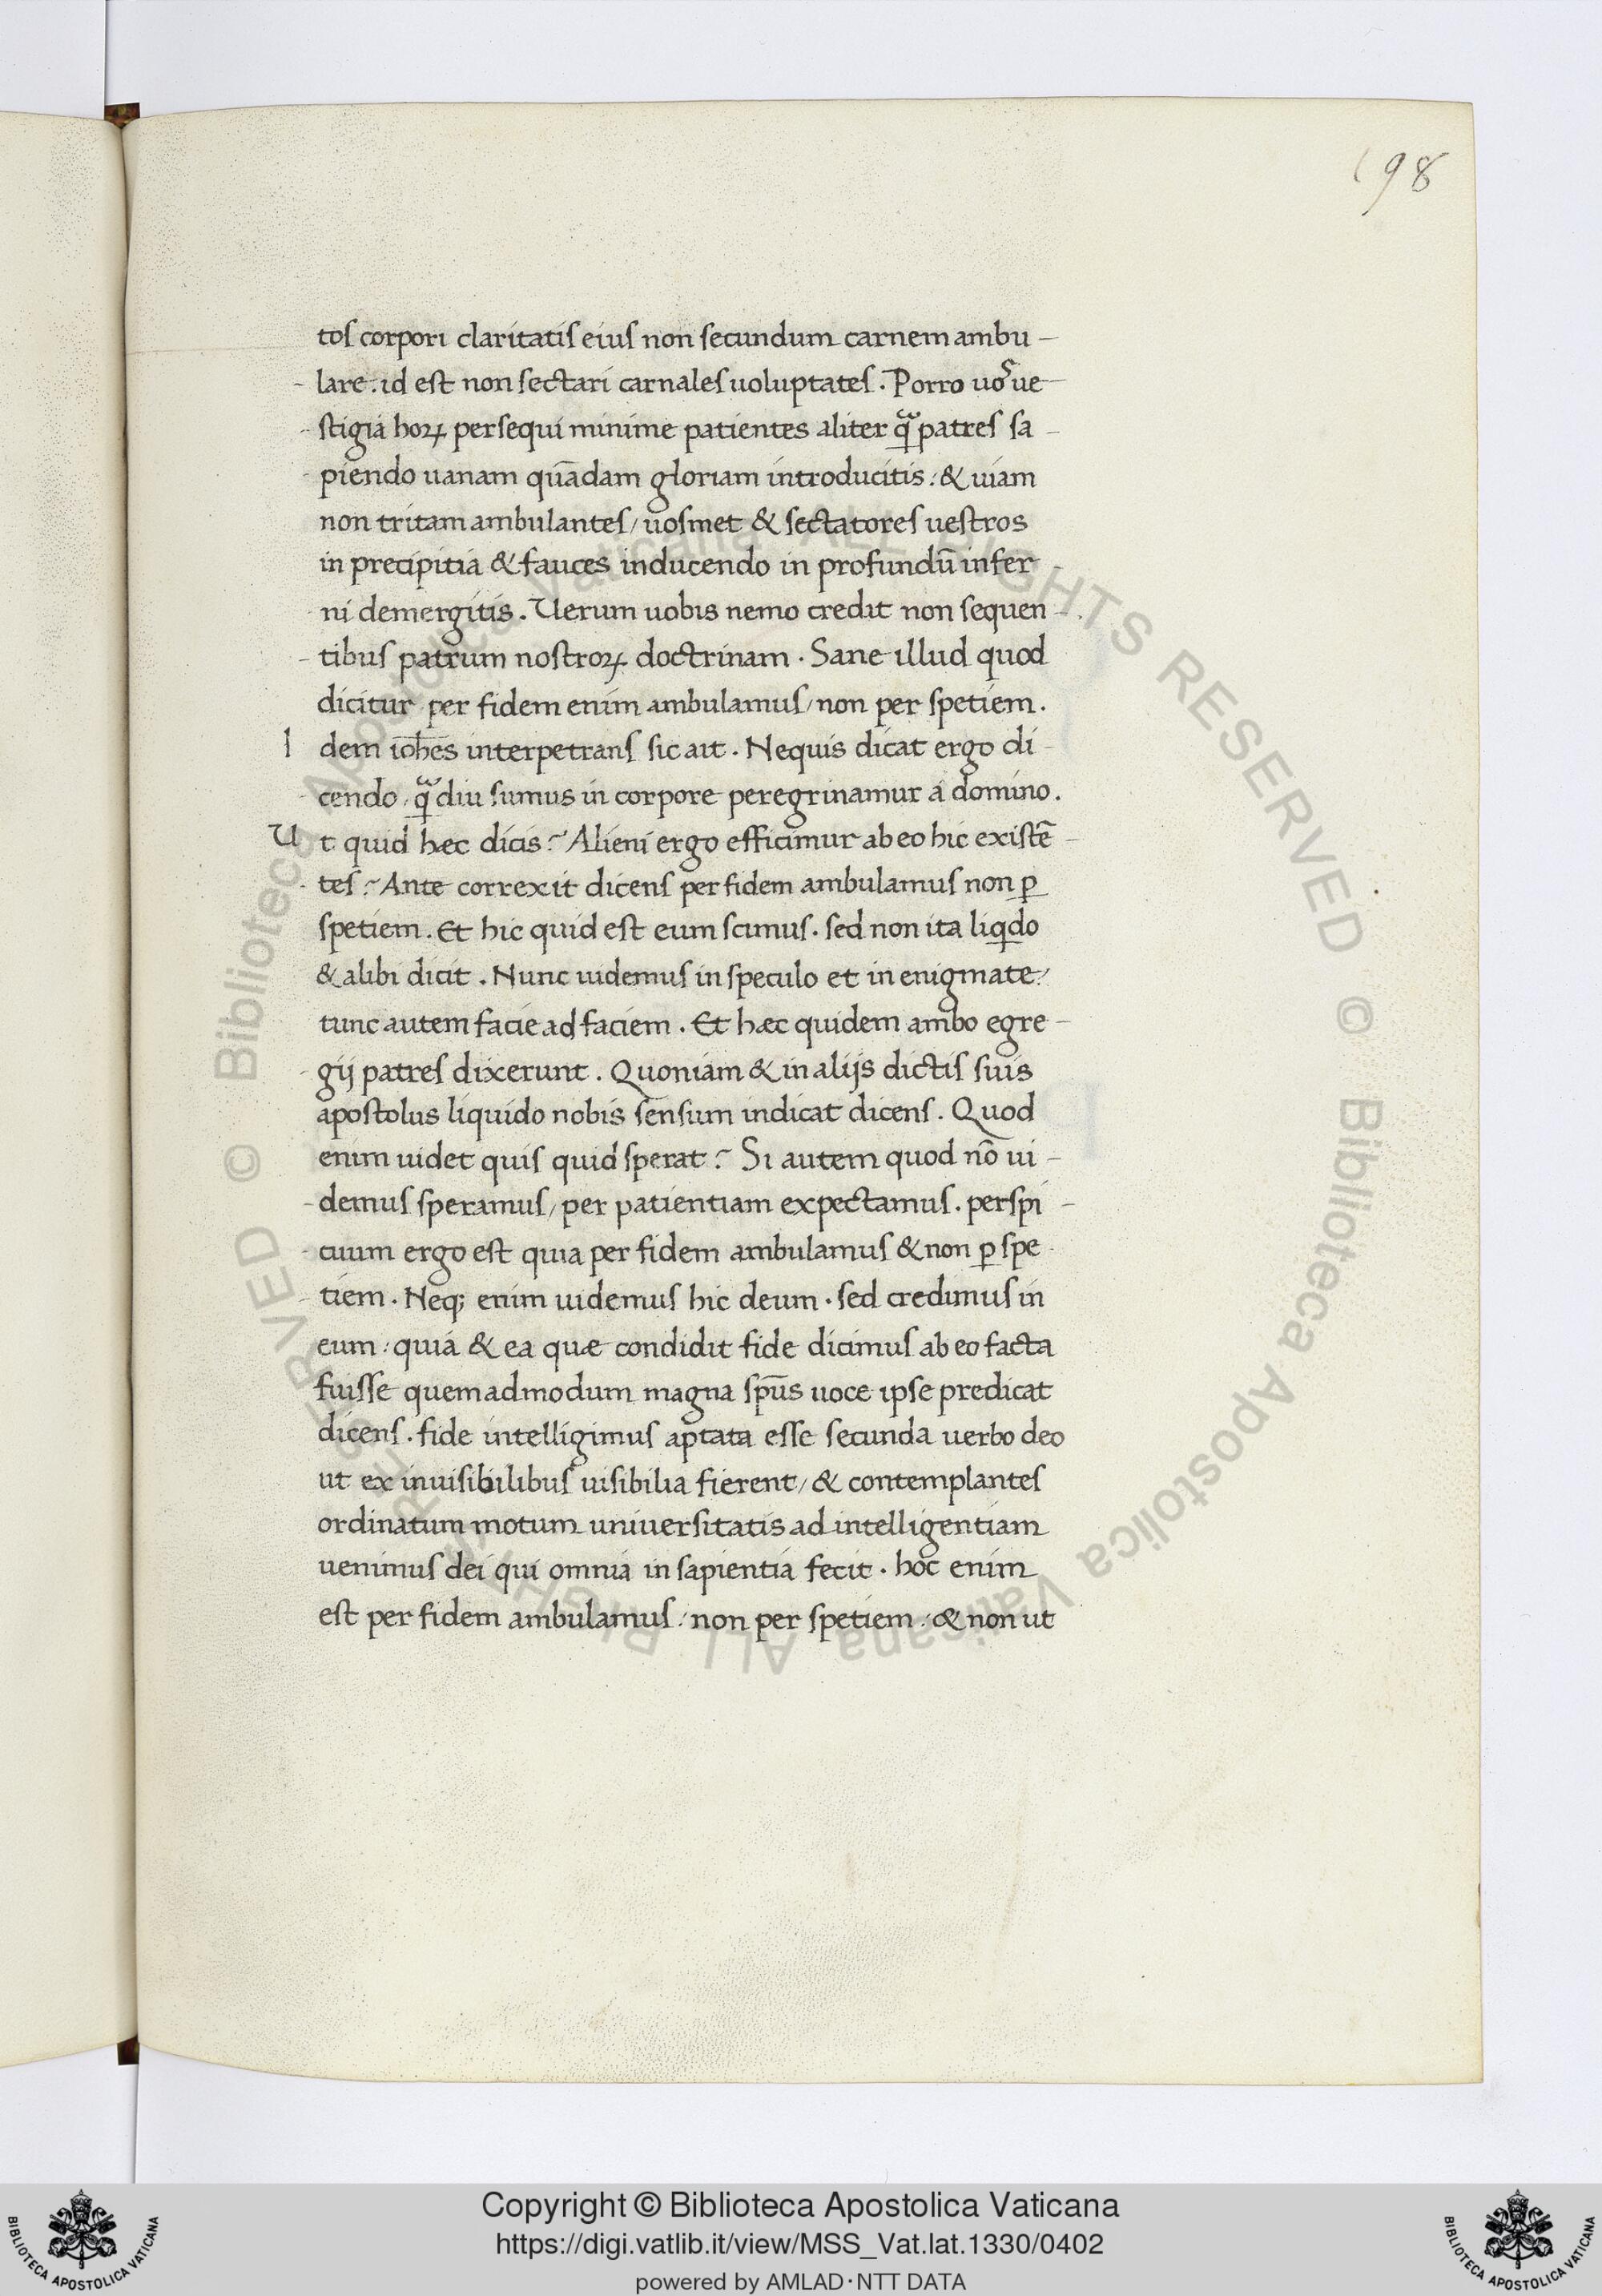 198
tos corpori claritatis eius non secundum carnem ambu-
lare. id est non sectari carnales uoluptates. Porro uos ue-
stigia horꝝ persequi minime patientes aliter q̃ patres sa-
piendo uanam quādam gloriam introducitis: & uiam
non tritam ambulantes/ uosmet & sectatores uestros
in precipitia & fauces inducendo in profundū infer-
ni demergitis. Uerum uobis nemo credit non sequen-
tibus patrum nostroꝝ doctrinam. Sane illud quod
dicitur per fidem enim ambulamus/ non per spetiem.
I dem ioh̄es interpetrans sic ait. Nequis dicat ergo di-
cendo, q̃diu sumus in corpore peregrinamur a domino.
U t quid hæc dicis? Alieni ergo efficimur ab eo hic existē-
tes? Ante correxit dicens per fidem ambulamus non ꝑ
spetiem. Et hic quid est eum scimus. sed non ita liqdo
& alibi dicit. Nunc uidemus in speculo et in enigmate:
tunc autem facie ad faciem. Et hæc quidem ambo egre-
gij patres dixerunt. Quoniam & in alijs dictis suis
apostolus liquido nobis sensum indicat dicens. Quod
enim uidet quis quid sperat? Si autem quod nō ui-
demus speramus/ per patientiam expectamus. perspi-
cuum ergo est quia per fidem ambulamus & non ꝑ spe-
tiem. Neq; enim uidemus hic deum. sed credimus in
eum: quia & ea quæ condidit fide dicimus ab eo facta
fuisse quemadmodum magna sp̄us uoce ipse predicat
dicens. fide intelligimus aptata esse secunda uerbo deo
ut ex inuisibilibus uisibilia fierent/ & contemplantes
ordinatum motum uniuersitatis ad intelligentiam
uenimus dei qui omnia in sapientia fecit. hoc enim
est per fidem ambulamus: non per spetiem: & non ut
© Biblioteca Apostolica Vaticana ALL RIGHTS RESERVED
© Biblioteca Apostolica Vaticana ALL RIGHTS RESERVED
Copyright © Biblioteca Apostolica Vaticana
https://digi.vatlib.it/view/MSS_Vat.lat.1330/0402
powered by AMLAD·NTT DATA
BIBLIOTECA APOSTOLICA VATICANA
BIBLIOTECA APOSTOLICA VATICANA